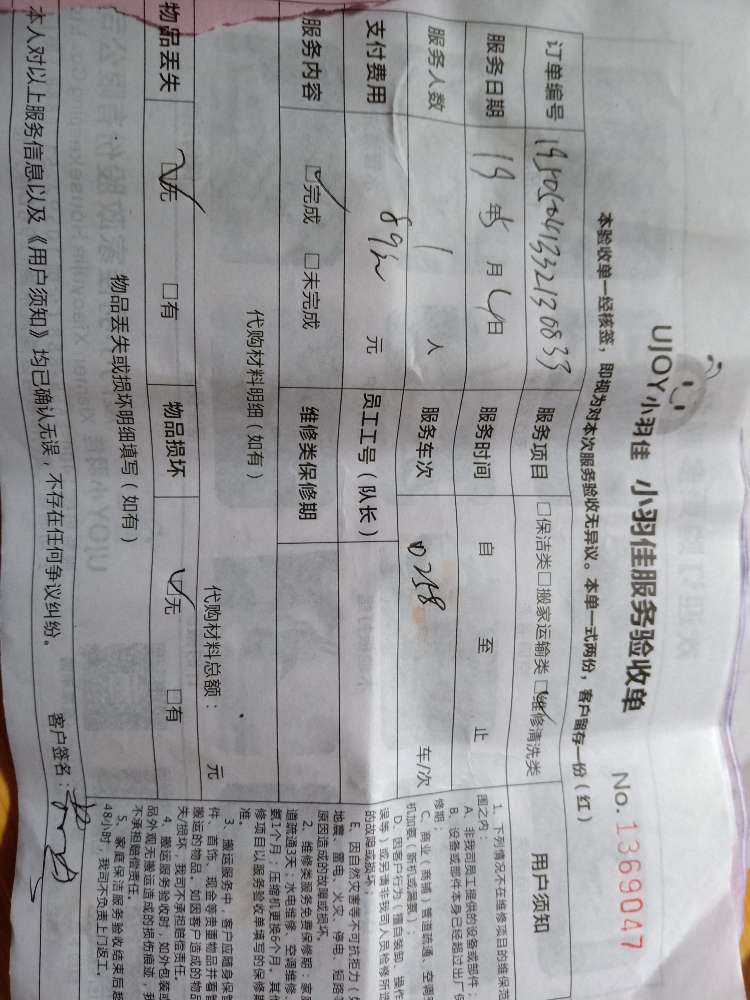 UJOY小羽佳 小羽佳服务验收单 No. 1369047
本验收单一经核签，即视为对本次服务验收无异议。本单一式两份，客户留存一份（红）
订单编号 服务项目 □保洁类□搬家运输类□维修清洗类
服务日期 19 年 5 月 日 服务时间 自 至 止
服务人数 1 人 服务车次 0258 车/次
支付费用 元 员工工号（队长）
服务内容 □完成 □未完成 维修类保修期
代购材料明细（如有） 代购材料总额： 元
物品丢失 □无 □有 物品损坏 □无 □有
物品丢失或损坏明细填写（如有）
本人对以上服务信息以及《用户须知》均已确认无误，不存在任何争议纠纷。 客户签名：
用户须知
1、下列情况不在维修项目的维保范
围之内：
A、非我司员工提供的设备或部件；
B、设备或部件本身已经超过出厂保
修期；
C、商业（商铺）管道疏通、空调
机加氨（新机或漏氨）；
D、因客户行为（擅自装卸、操作
误等）或另请非我司人员检修所
的故障或损坏；
E、因自然灾害等不可抗力（
地震、雷电、火灾、停电、短路
原因造成的故障或损坏。
2、维修类服务免费保修期：家
道疏通3天；水电维修、空调维修
氨1个月；压缩机更换6个月。其
修项目以服务验收单填写的保修
准。
3、搬运服务中，客户应随身保
件、首饰、现金等贵重物品并看
搬运的物品，如因客户造成的物
失/损坏，我司不承担赔偿责任。
4、搬运服务验收时，如外包装
品外观无搬运造成的损伤痕迹，我
不承担赔偿责任。
5、家庭保洁服务验收结束后超
48小时，我司不负责上门返工。